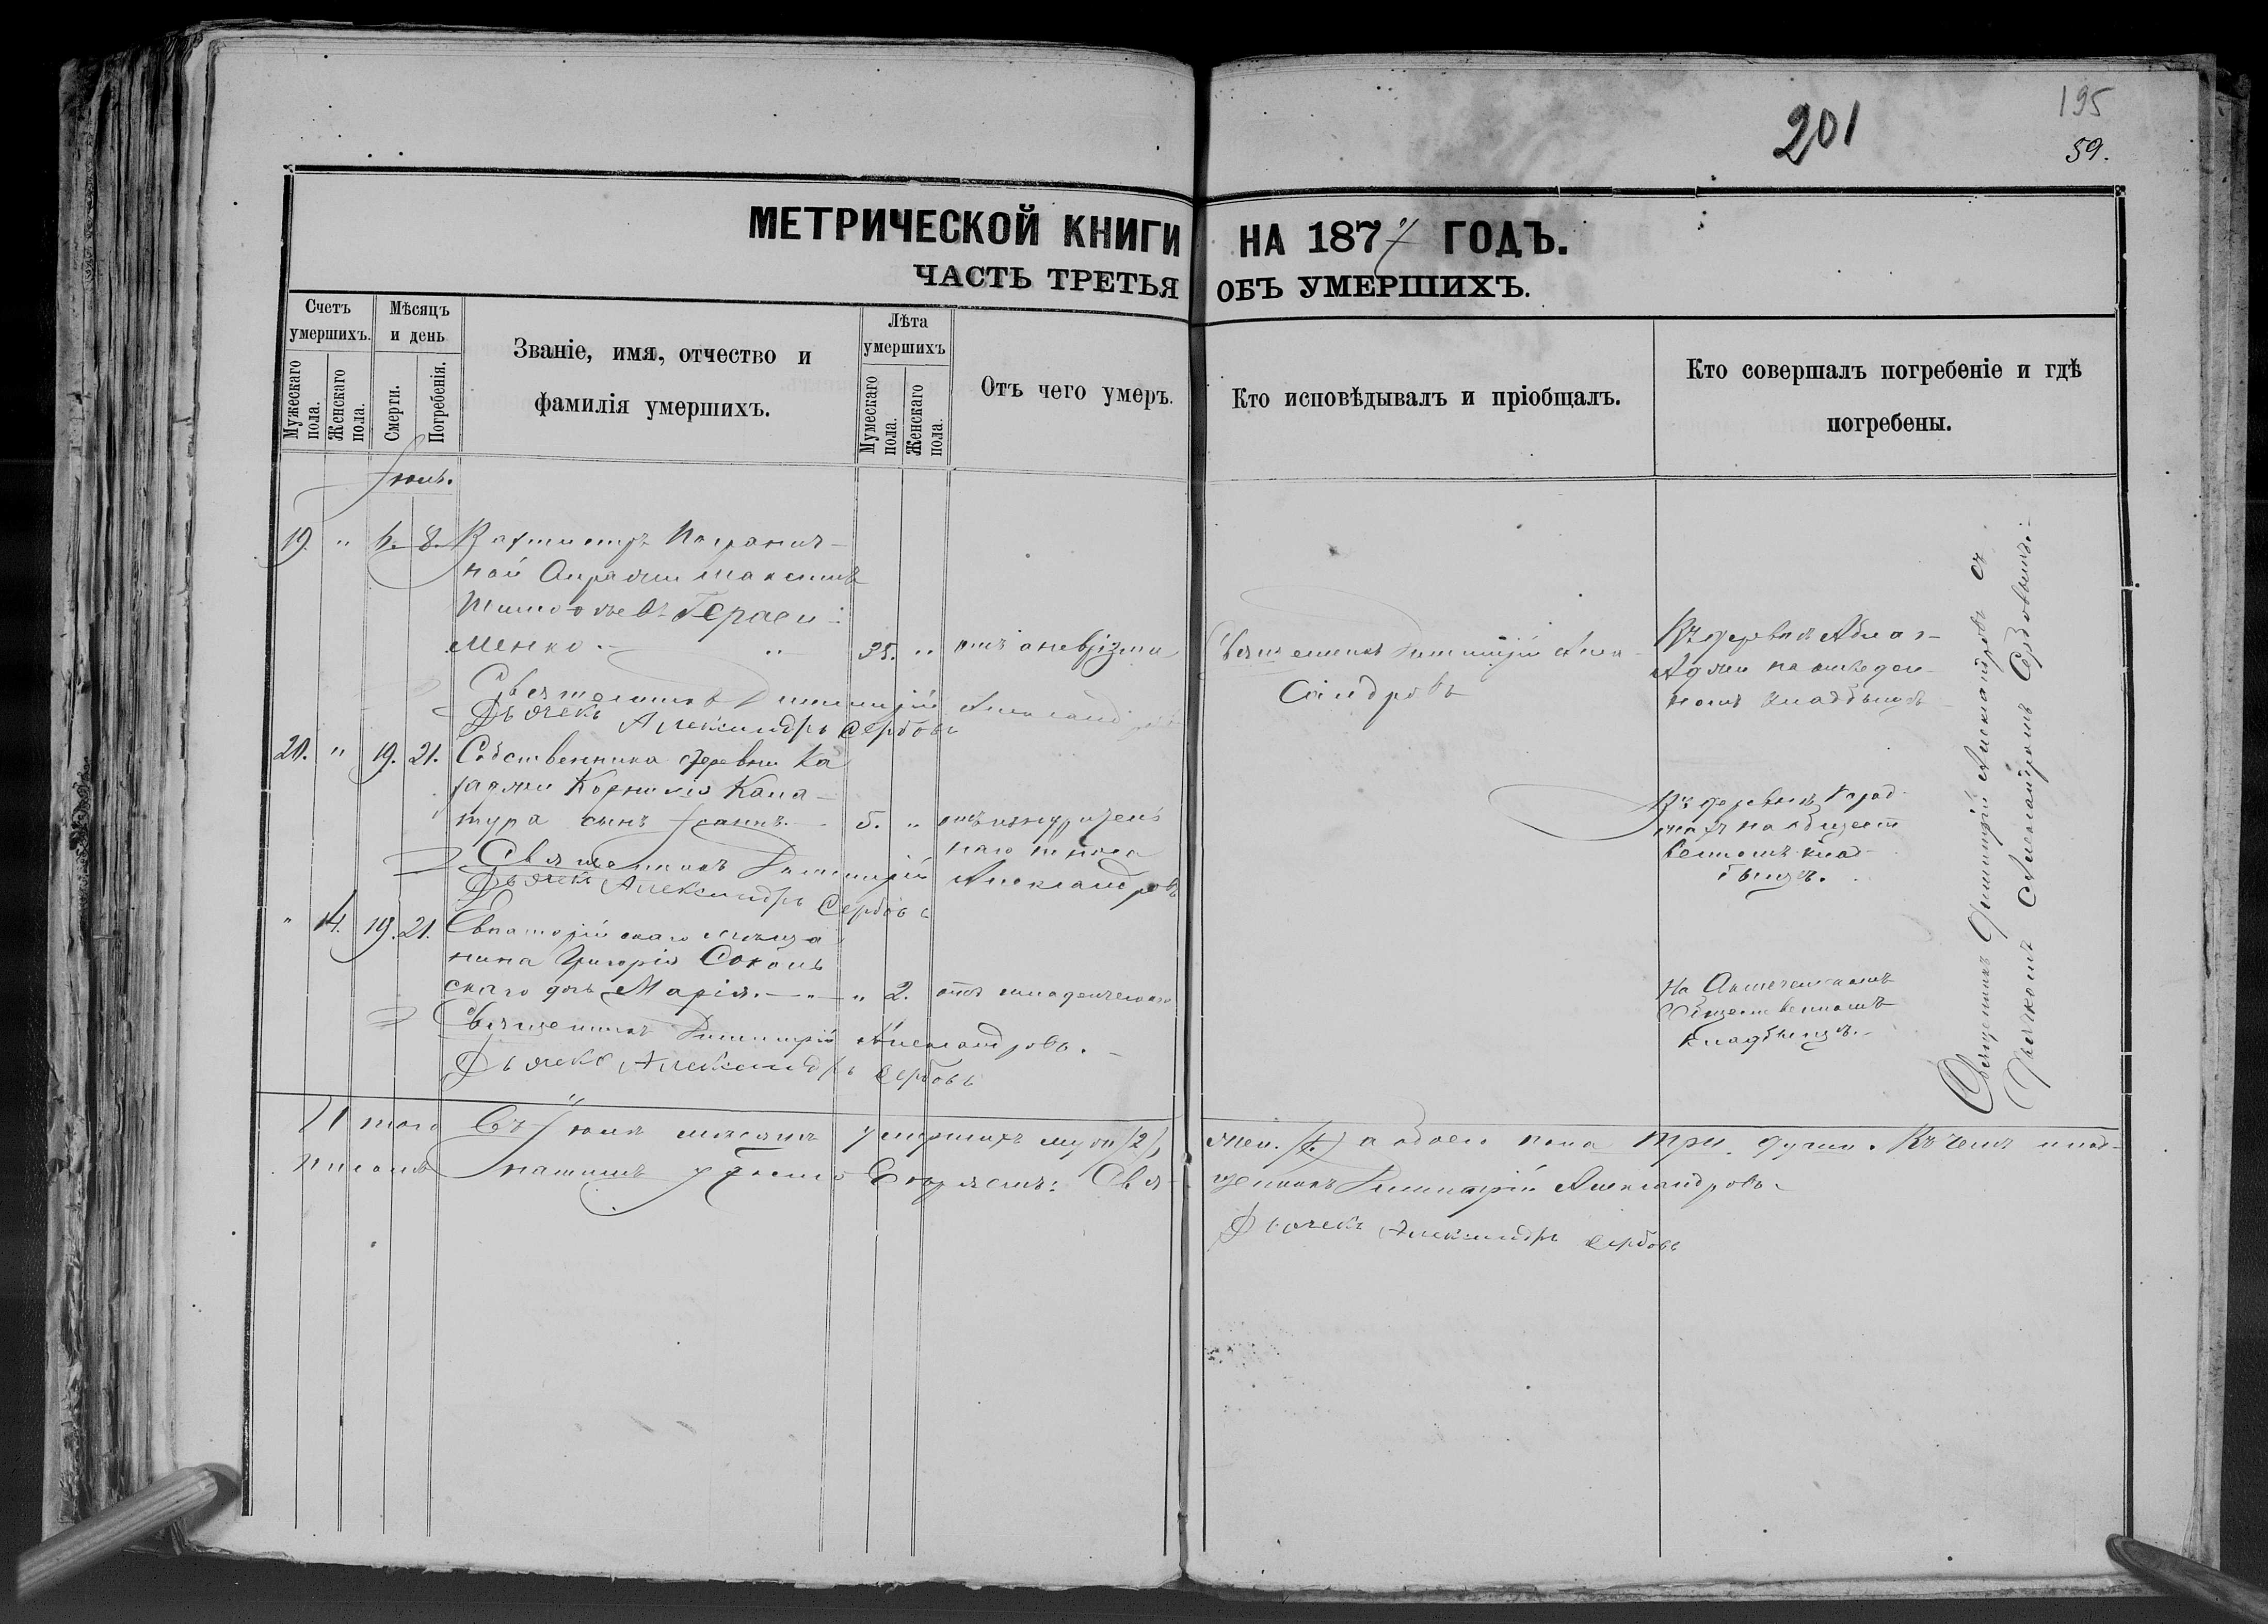 201
195
59.
МЕТРИЧЕСКОЙ КНИГИ НА 1877 ГОДЪ.
ЧАСТЬ ТРЕТЬЯ ОБЪ УМЕРШИХЪ.
Счетъ умершихъ.
Мужескаго пола.
Женскаго пола.
Мѣсяцъ и день
Смерти.
Погребенія.
Званіе, имя, отчество и
фамилія умершихъ.
Лѣта умершихъ
Мужескаго пола.
Женскаго пола.
Отъ чего умеръ.
Кто исповѣдывалъ и пріобщалъ.
Кто совершалъ погребеніе и гдѣ
погребены.
19. " 6. 8. Вахмистръ Погранич-
ной Стражи Максимъ
Герасі-
менко. " 35. " отъ аневризма
Священникъ Димитрій Алек-
сандровъ
Въ деревнѣ
на отведен-
номъ кладбищѣ
Священникъ Димитрій Александровъ
Дьячекъ Александръ Сербовъ
20. " 19. 21. Собственника деревни Ка
раджи Корнилія Капа-
тура сынъ Іоаннъ. 5. " отъ изнурител
Въ деревнѣ Карад-
жахъ на общест
венномъ клад-
бищѣ.
Священникъ Димитрій Александровъ
Дьячекъ Александръ Сербовъ
" 14. 19. 21. Евпаторійскаго мѣща
нина Григорія Соколь
скаго дочь Марія. " " 2. отъ младенческаго
На Акмечетскомъ
общественномъ
кладбищѣ.
Священникъ Димитрій Александровъ.
Дьячекъ Александръ Сербовъ
Священникъ Димитрій Александровъ съ
Дьячкомъ Александромъ Сербовымъ.
Итого Въ мѣсяцѣ умершихъ муж. (2),
жен. (1) а обоего пола три души. Въ чемъ и под-
писомъ нашимъ Свя-
щенникъ Димитрій Александровъ
Дьячекъ Александръ Сербовъ